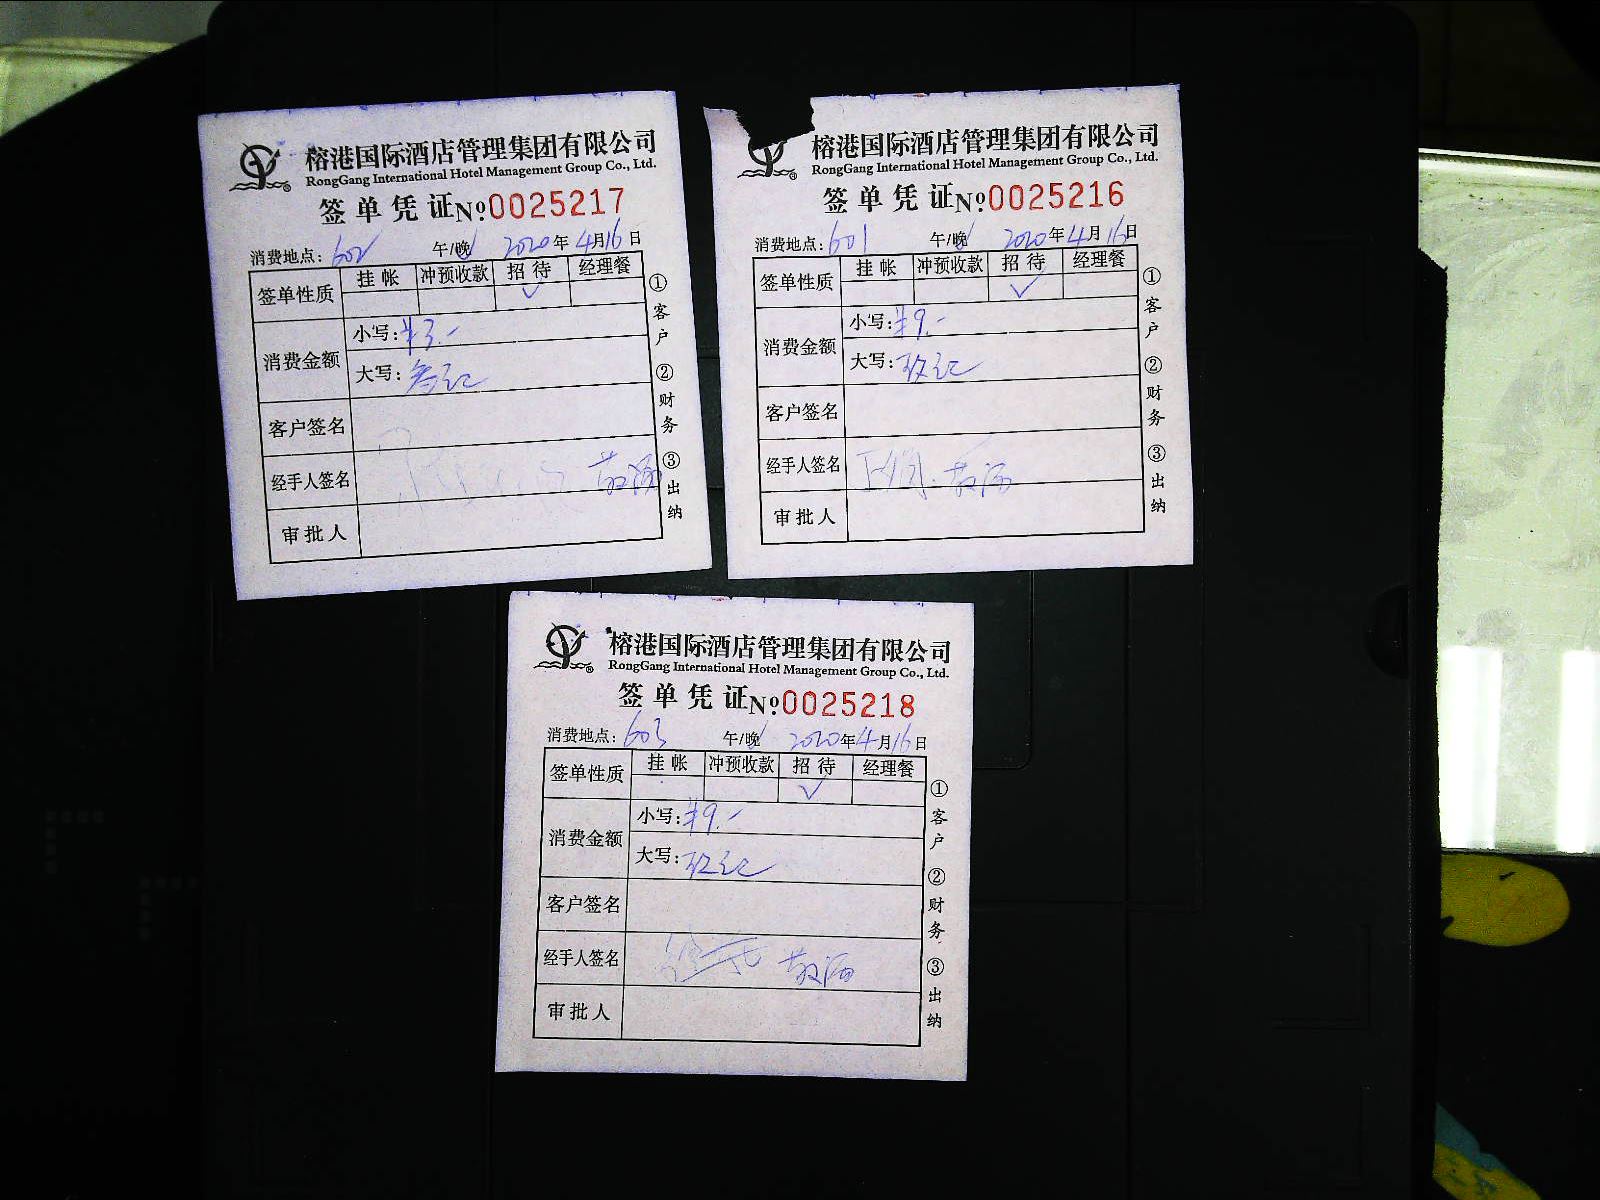 榕港国际酒店管理集团有限公司
RongGang International Hotel Management Group Co., Ltd.
签单凭证№0025217
消费地点：602 午/晚 2020年4月16日
签单性质 挂帐 冲预收款 招待 经理餐
✓
消费金额 小写：¥3.-
大写：叁元
客户签名
经手人签名
审批人
①客户 ②财务 ③出纳
榕港国际酒店管理集团有限公司
RongGang International Hotel Management Group Co., Ltd.
签单凭证№0025216
消费地点：601 午/晚 2020年4月16日
签单性质 挂帐 冲预收款 招待 经理餐
✓
消费金额 小写：¥9.-
大写：玖元
客户签名
经手人签名
审批人
①客户 ②财务 ③出纳
榕港国际酒店管理集团有限公司
RongGang International Hotel Management Group Co., Ltd.
签单凭证№0025218
消费地点：603 午/晚 2020年4月16日
签单性质 挂帐 冲预收款 招待 经理餐
✓
消费金额 小写：¥9.-
大写：玖元
客户签名
经手人签名
审批人
①客户 ②财务 ③出纳